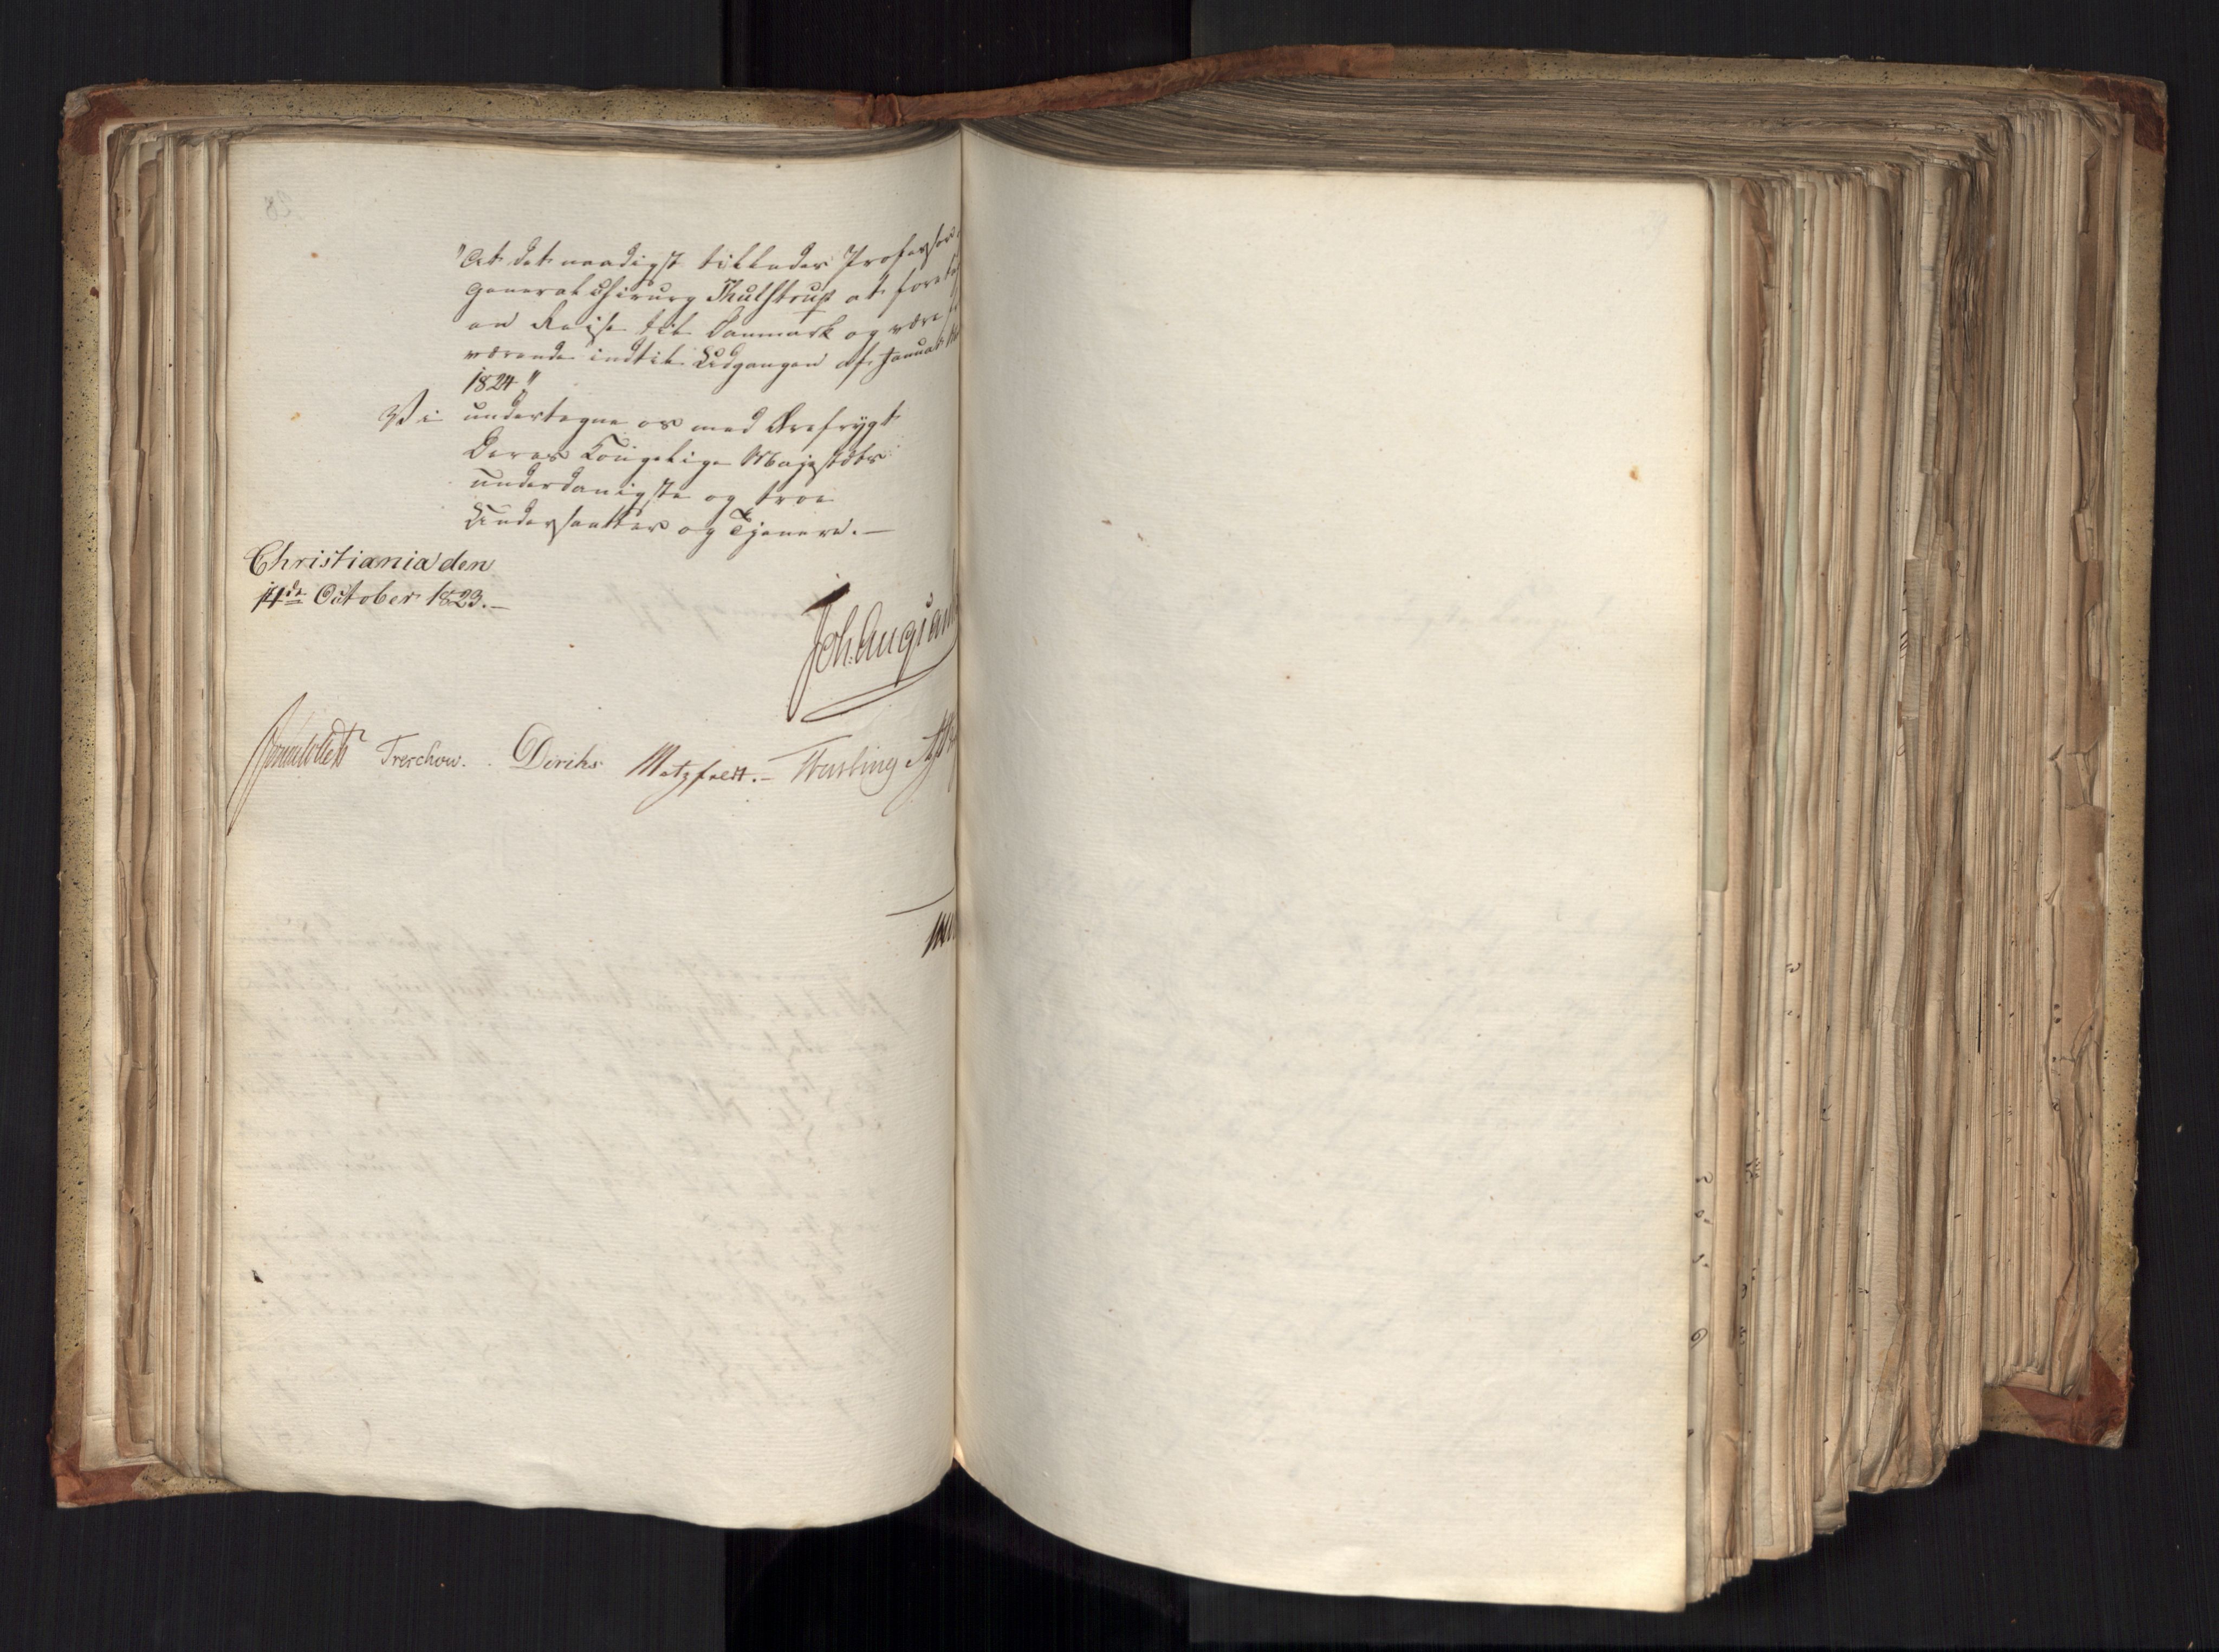 "At det naadigst tillades Professor
Generalchirurg Thulstrup at foretag
en Reise til Danmark og være fra
værende indtil Udgangen af Januar
1824"
Vi undertegne os med Ærefrygt
Deres Kongelige Majestæts
underdanigste og troe
Undersaatter og Tjenere.—
Christiania den
14de October 1823.—
Joh. Aug: Sand
Sommerfeldt Treschow. Diriks Motzfeldt.—